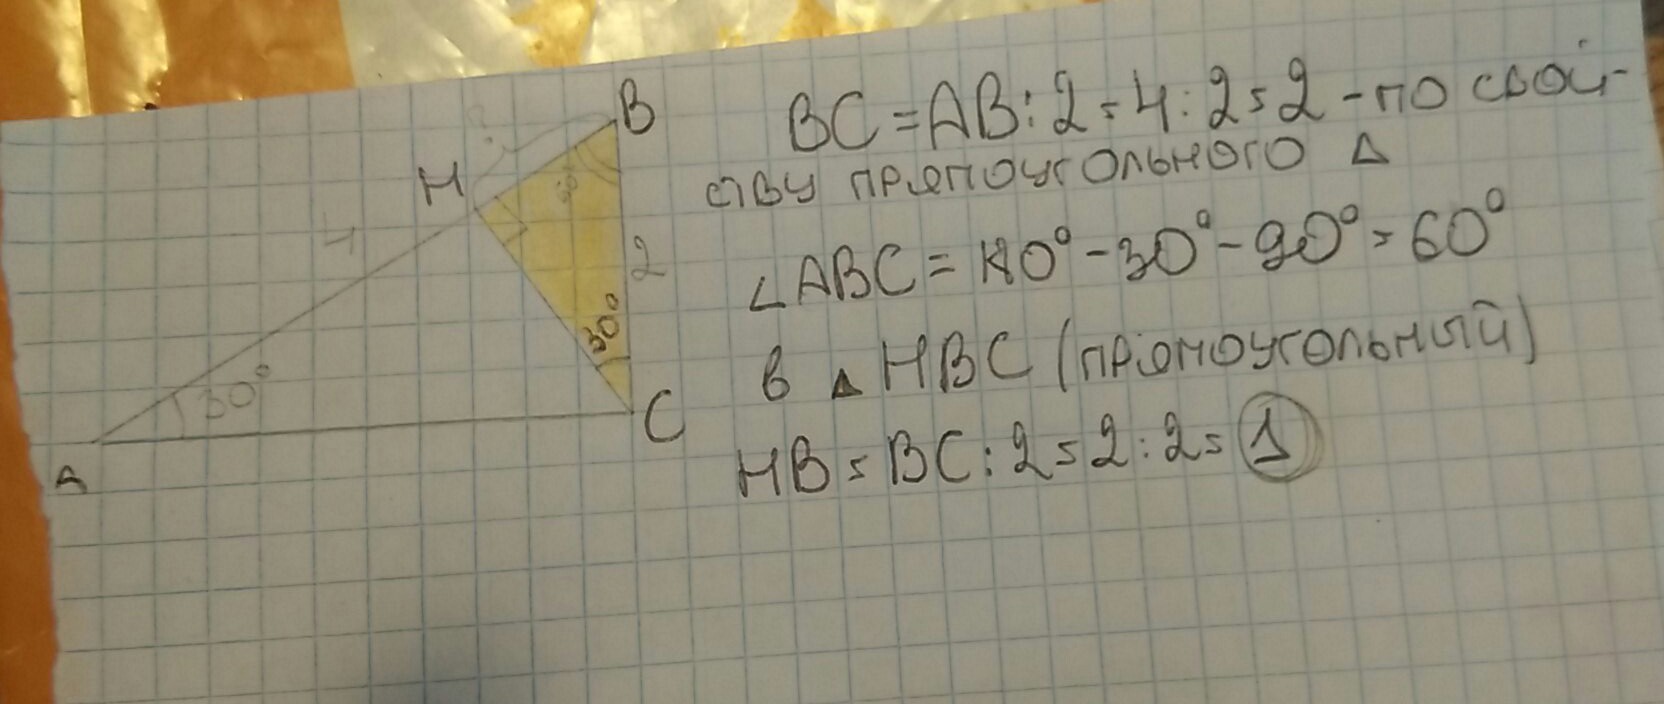 B
BC = AB : 2 = 4 : 2 = 2 - по свой-
ству прямоугольного Δ
H
?
60
4
2
∠ABC = 180° - 30° - 90° = 60°
30°
в Δ HBC (прямоугольный)
30°
C
HB = BC : 2 = 2 : 2 = 1
A